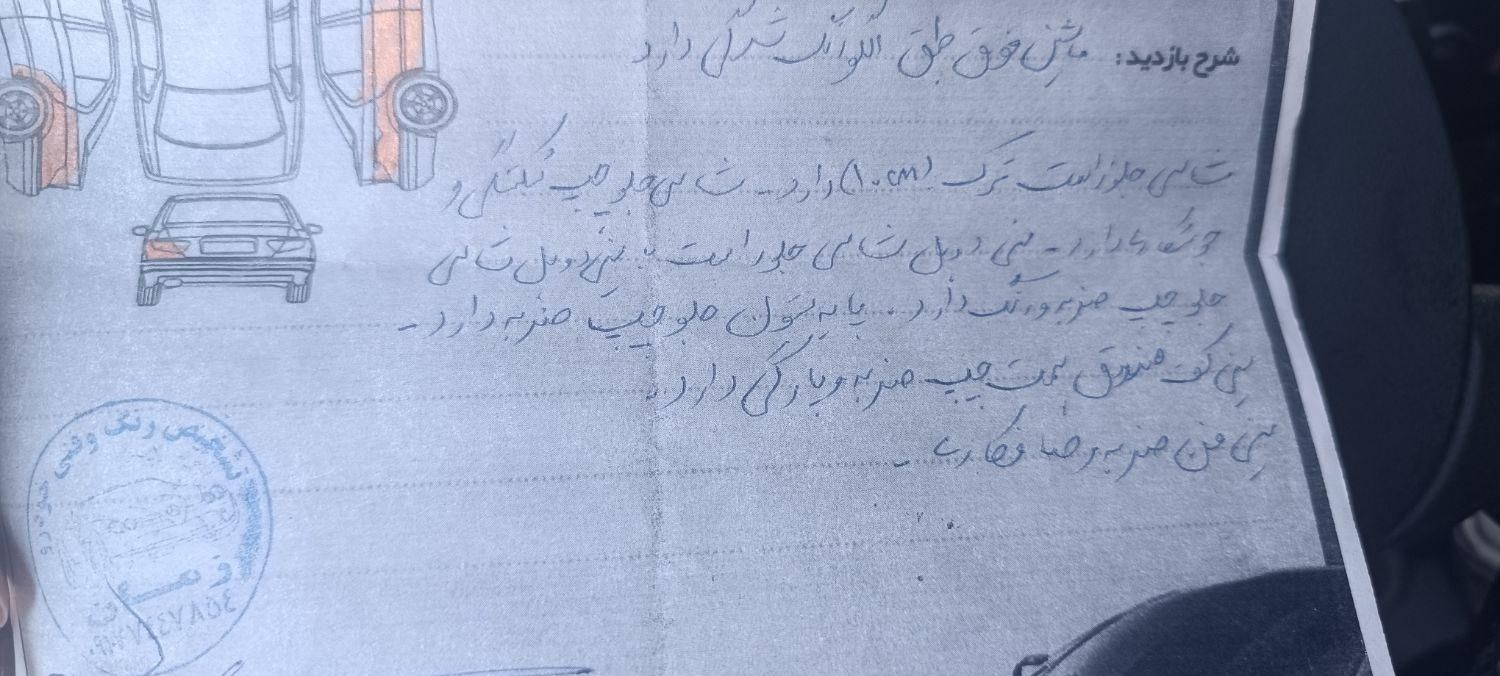 شرح بازدید: ماشین فوق طبق الگو رنگ شدگی دارد
شاسی جلو راست ترک (۱۰cm) دارد - شاسی جلو چپ شکستگی و
جوشکاری دارد - سینی دوبل شاسی جلو راست و سینی دوبل شاسی
جلو چپ ضربه و رنگ دارد. پایه سول جلو چپ ضربه دارد -
سینی کف صندوق سمت چپ ضربه و پارگی دارد.
سینی فن ضربه و صافکاری -
تشخیص رنگ و فنی خودرو